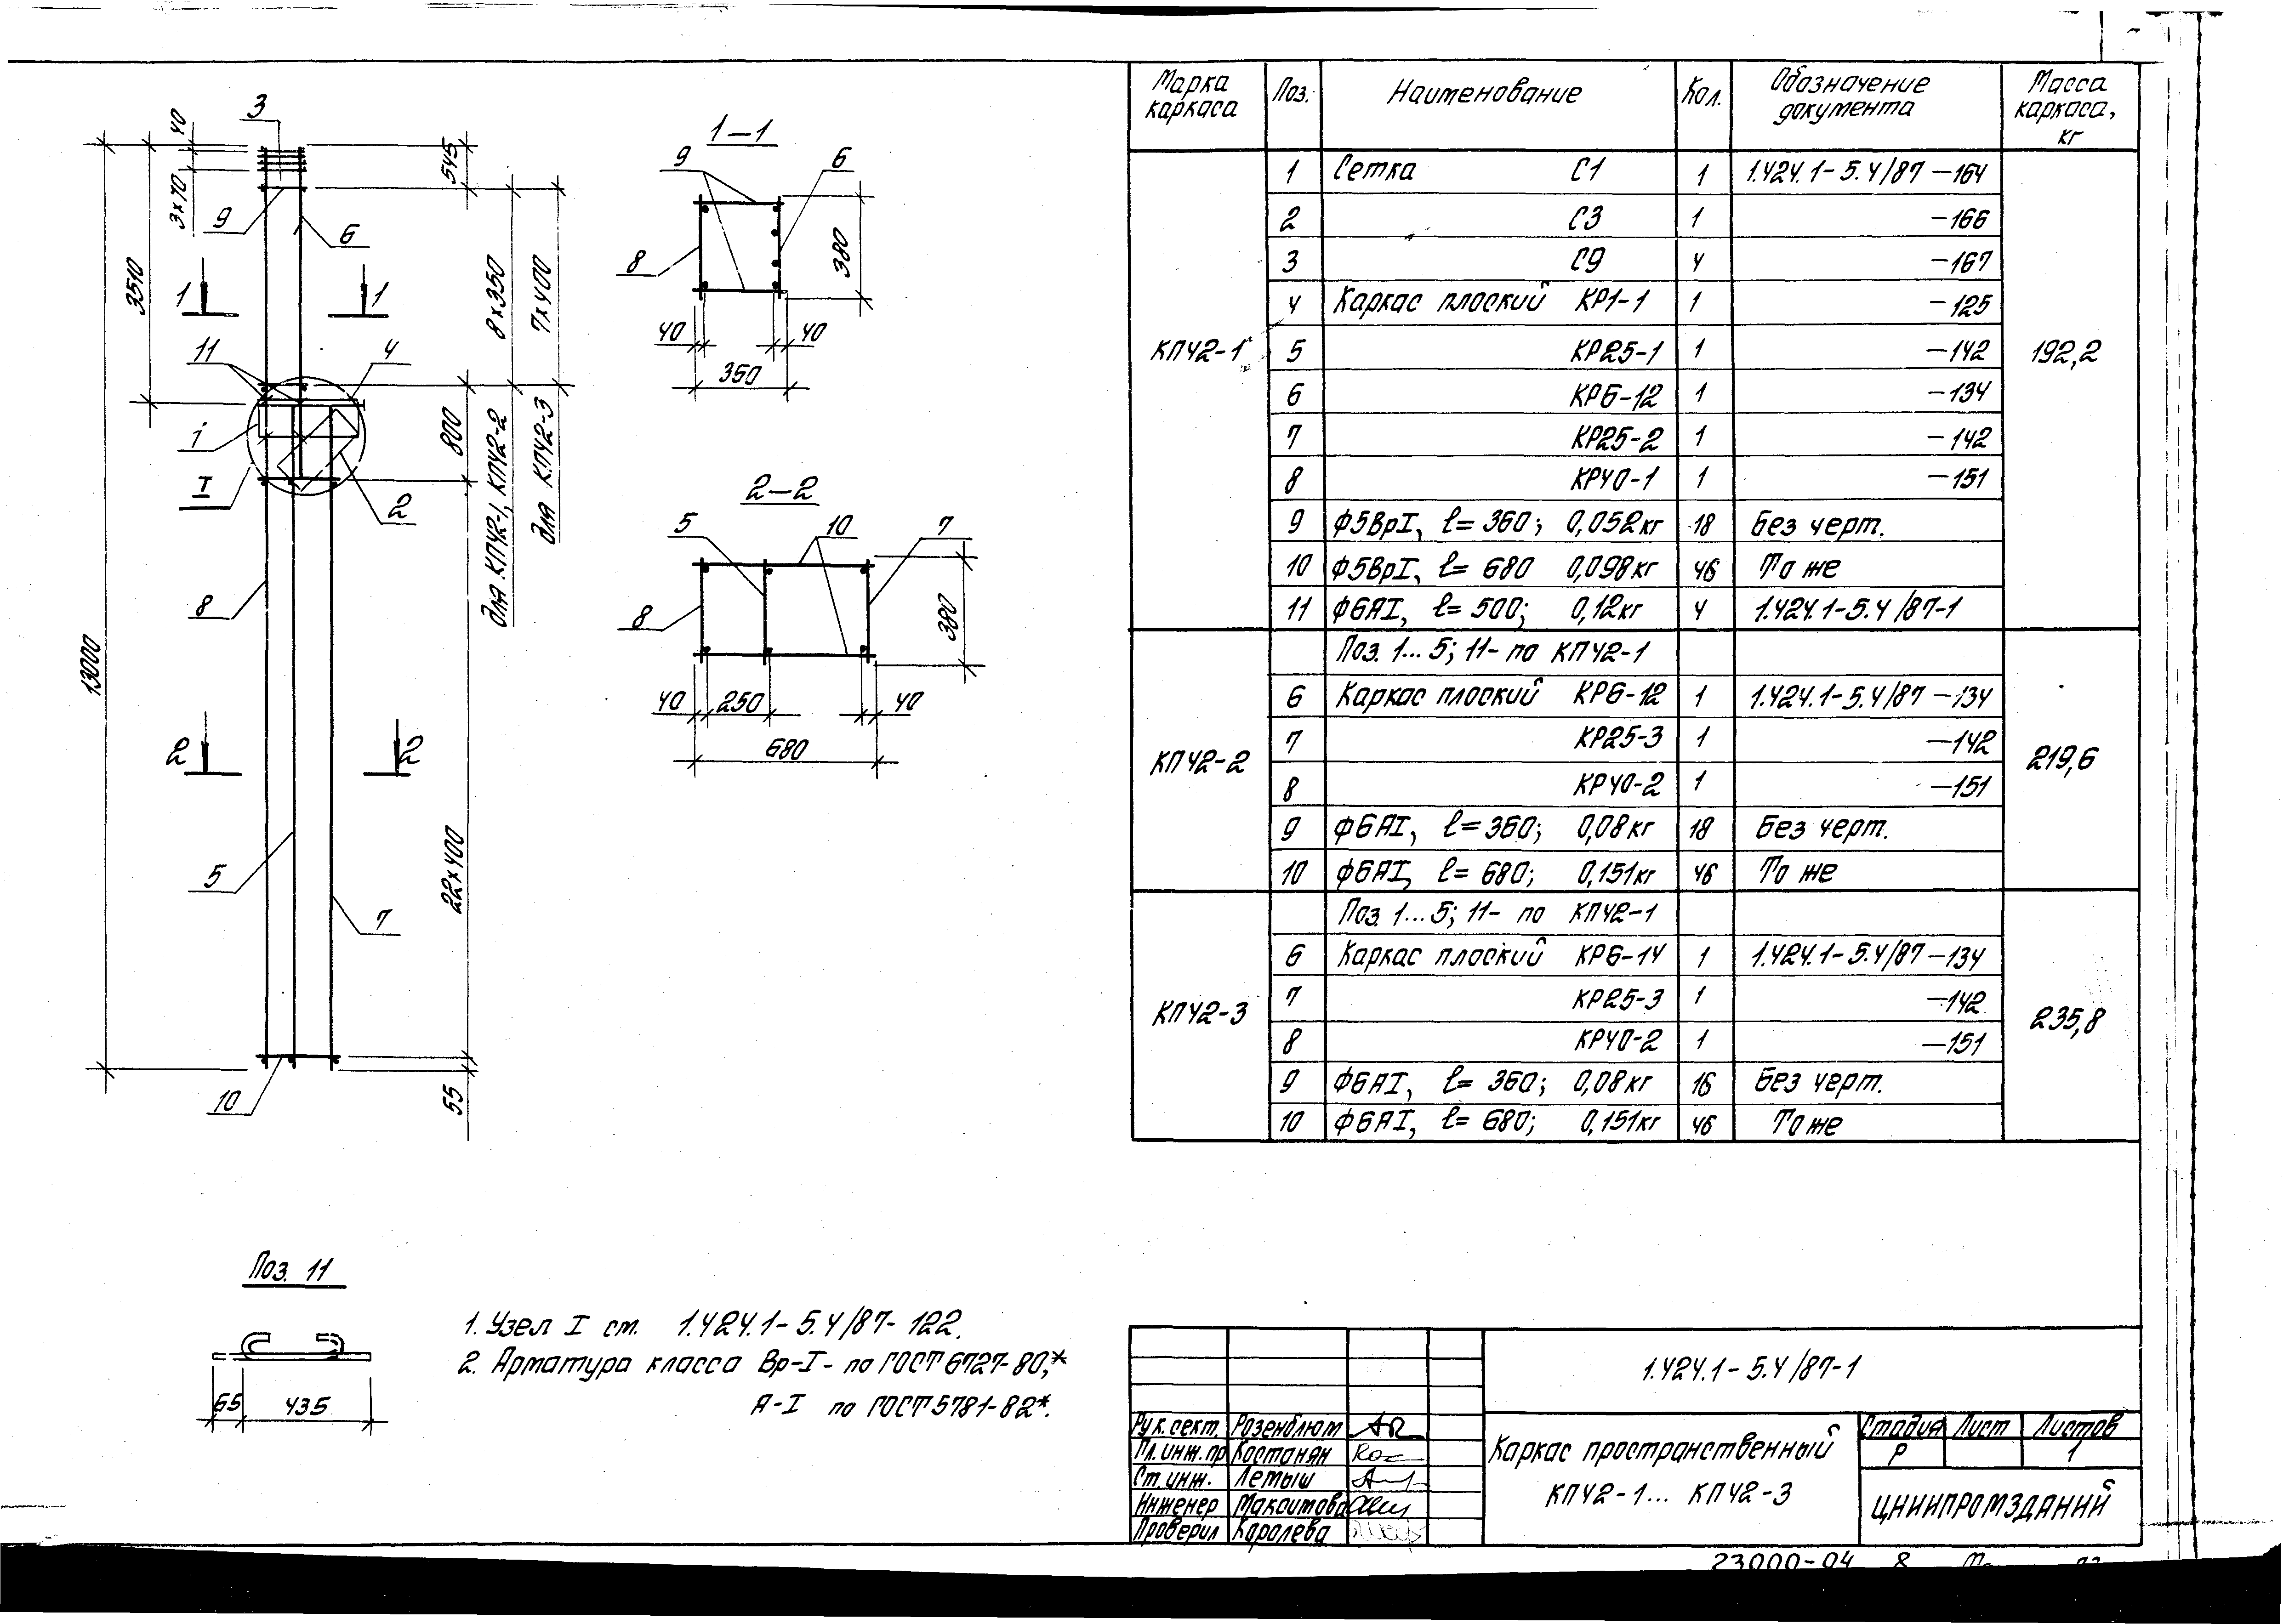 Марка каркаса | Поз. | Наименование | Кол. | Обозначение документа | Масса каркаса, кг
КП42-1 | 1 | Сетка С1 | 1 | 1.424.1-5.4/87-164 | 192,2
2 | С3 | 1 | -166
3 | С9 | 4 | -167
4 | Каркас плоский КР1-1 | 1 | -125
5 | КР25-1 | 1 | -142
6 | КР6-12 | 1 | -134
7 | КР25-2 | 1 | -142
8 | КР40-1 | 1 | -151
9 | Ф5ВрI, ℓ=360; 0,052кг | 18 | Без черт.
10 | Ф5ВрI, ℓ=680 0,098кг | 46 | То же
11 | Ф6АI, ℓ=500; 0,12кг | 4 | 1.424.1-5.4/87-1
КП42-2 | Поз. 1...5; 11- по КП42-1 | 219,6
6 | Каркас плоский КР6-12 | 1 | 1.424.1-5.4/87-134
7 | КР25-3 | 1 | -142
8 | КР40-2 | 1 | -151
9 | Ф6АI, ℓ=360; 0,08кг | 18 | Без черт.
10 | Ф6АI, ℓ=680; 0,151кг | 46 | То же
КП42-3 | Поз. 1...5; 11- по КП42-1 | 235,8
6 | Каркас плоский КР6-14 | 1 | 1.424.1-5.4/87-134
7 | КР25-3 | 1 | -142
8 | КР40-2 | 1 | -151
9 | Ф6АI, ℓ=360; 0,08кг | 16 | Без черт.
10 | Ф6АI, ℓ=680; 0,151кг | 46 | То же
3
40
3х70
545
9
6
3510
1
1
8х350
7х400
11
4
1
I
2
800
для КП42-1, КП42-2
для КП42-3
8
13000
2
2
5
7
22х400
10
55
1-1
9
6
8
380
40
40
360
2-2
5
10
7
8
380
40
250
40
680
Поз. 11
65
435
1. Узел I см. 1.424.1-5.4/87-122.
2. Арматура класса Вр-I- по ГОСТ 6727-80,*
А-I по ГОСТ 5781-82*.
1.424.1-5.4/87-1
Рук.сект. Розенблюм
Гл.инж.пр Костанян
Ст.инж. Летыш
Инженер Максимова
Проверил Королева
Каркас пространственный
КП42-1... КП42-3
Стадия Лист Листов
Р 1
ЦНИИПРОМЗДАНИЙ
23000-04 8